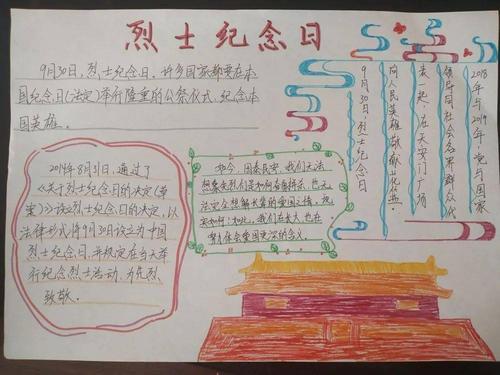 烈士纪念日
9月30日,烈士纪念日,许多国家都要在本
国纪念日(法定)举行隆重的公祭仪式,纪念本
国英雄。
2014年8月31日,通过了
《关于烈士纪念日的决定(草
案)》设立烈士纪念日的决定,以
法律形式将9月30日设立为中国
烈士纪念日,并规定在当天举
行纪念烈士活动,为先烈
致敬。
如今,国泰民安,我们无法
想象先烈们是如何奋勇拼杀,也无
法完全想解先辈的爱国之情,现
实如何?如此,我们在长大,也在
努力体会爱国更深的含义。
2018年与2019年,党与国家
领导同社会各界群众代
表一起,在天安门广场
向人民英雄敬献花篮。
9月30日,烈士纪念日